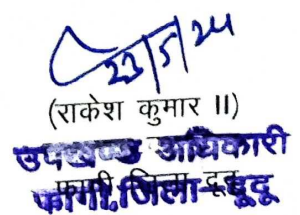 23/5/24
(राकेश कुमार II)
उपखण्ड अधिकारी
फागी, जिला-दूदू